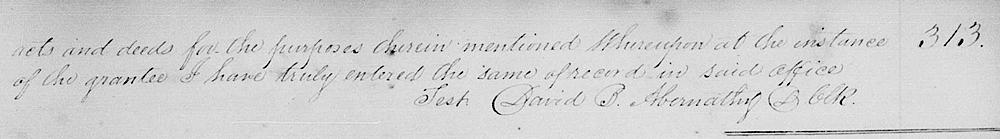 acts and deeds for the purposes therein mentioned Whereupon at the instance 313.
of the grantee I have truly entered the same of record in said office
Test David B. Abernathy D Clk.